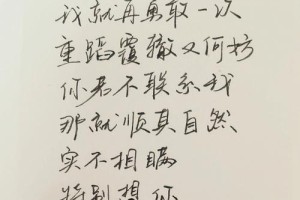 我就再勇敢一次
重蹈覆辙又何妨
你若不联系我
那就顺其自然
实不相瞒
特别想你